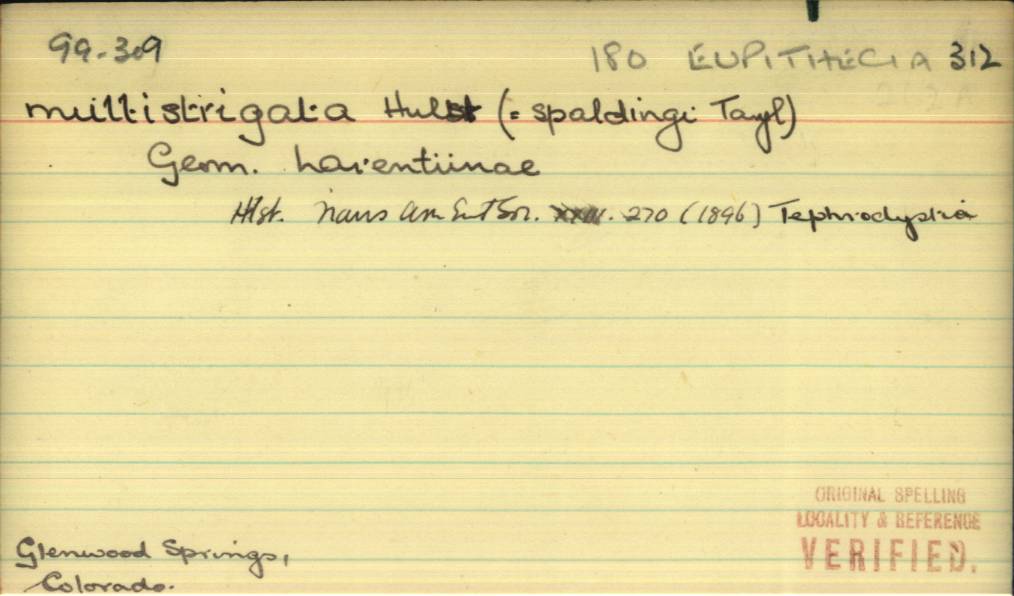 99.309 180 EUPITHECIA 312
multistrigata Hulst (= spaldingi Tayl)
Geom. Larentiinae
Hlst. Trans Am Ent Soc. XXIII. 270 (1896) Tephroclystia
ORIGINAL SPELLING
LOCALITY & REFERENCE
VERIFIED.
Glenwood Springs,
Colorado.